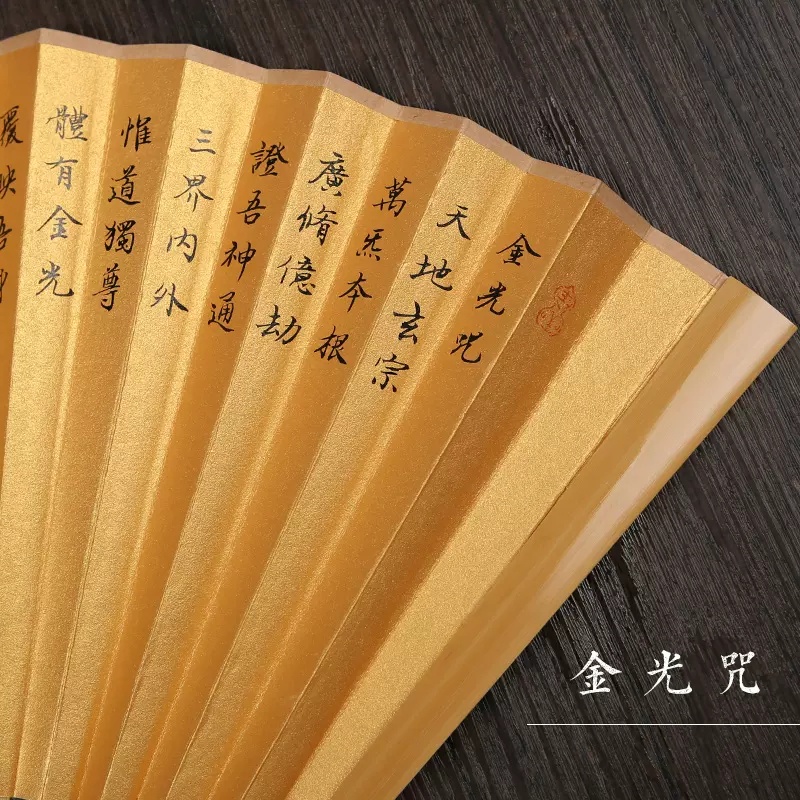 金光咒
天地玄宗
萬炁本根
廣脩億劫
證吾神通
三界内外
惟道獨尊
體有金光
覆映吾身
金光咒